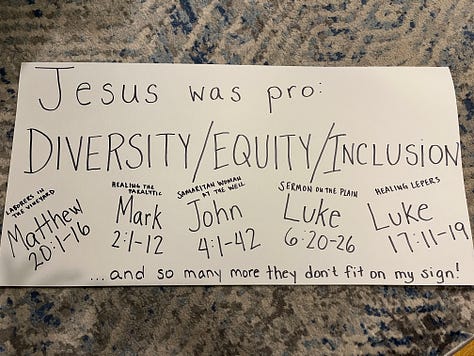 Jesus was pro:
DIVERSITY/EQUITY/INCLUSION
LABORERS IN THE VINEYARD
Matthew
20:1-16
HEALING THE PARALYTIC
Mark
2:1-12
SAMARITAN WOMAN AT THE WELL
John
4:1-42
SERMON ON THE PLAIN
Luke
6:20-26
HEALING LEPERS
Luke
17:11-19
...and so many more they don't fit on my sign!